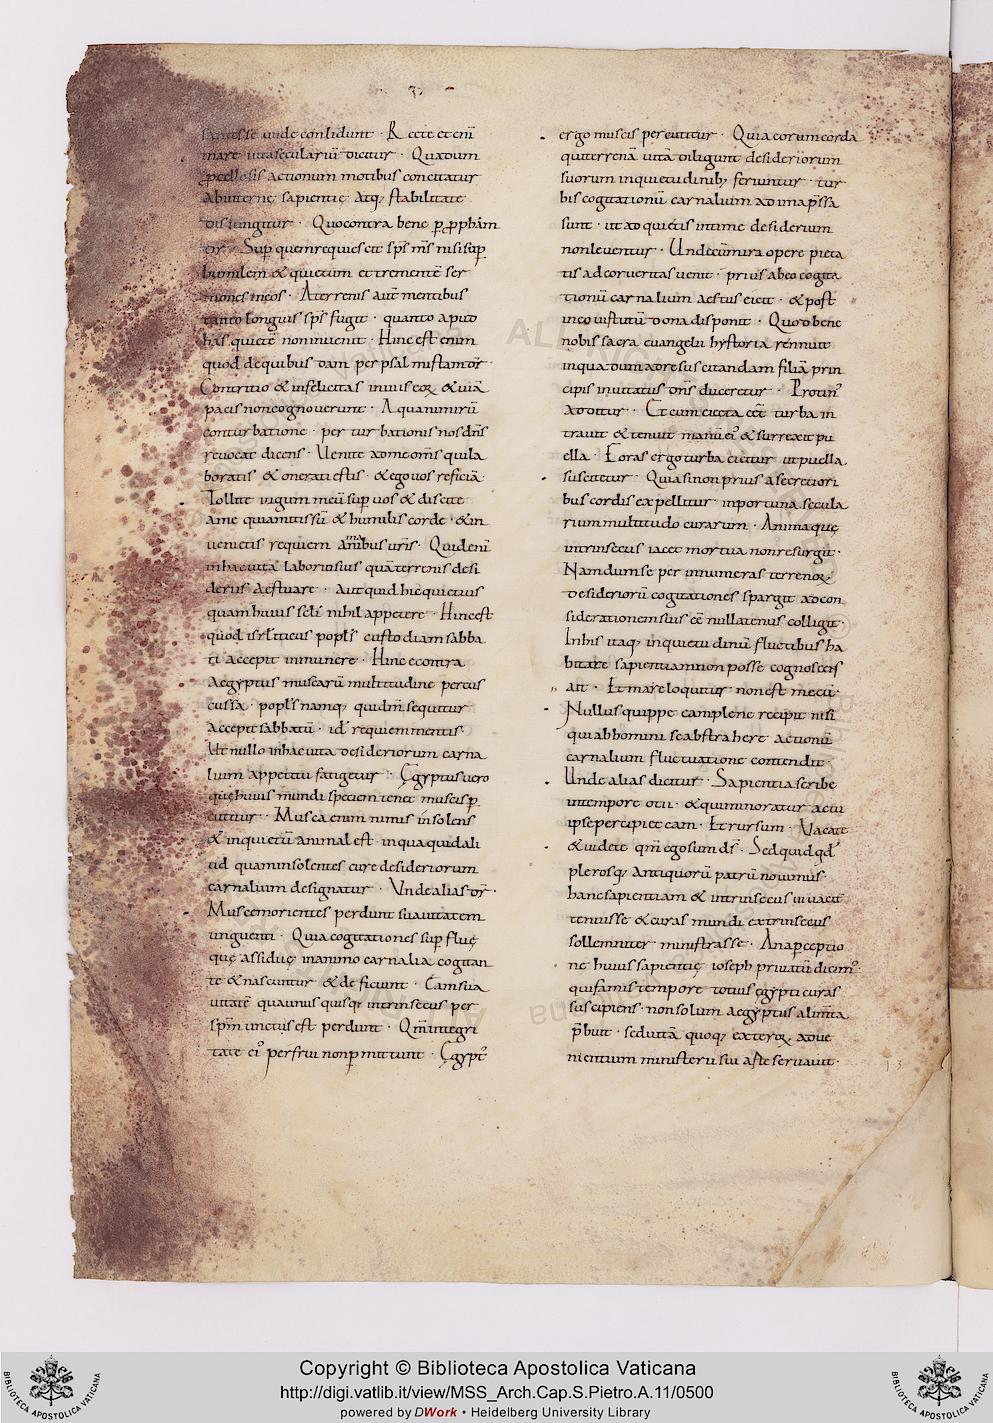 sanesse unde conlidunt · Recte et eni&#772;
mare vita seculariu&#772; dicitur · Qua dum
procellosis actionum motibus concitatur
ab interne˛ sapientie˛ atq; stabilitate
disiungitur · Quo contra bene p&#772; p&#772;pham
dr̄ · Sup̱ quem requiescit sp̄s m̄s nisi sup̱
humilem & quietum et tremente&#772; ser
mones meos · A terrenis aut&#772; mentibus
tanto longius sp̄s fugit · quanto apud
has quiete&#772; non invenit · Hinc est enim
quod de quibusdam per psalmistam dr̄ ·
Contritio & infelicitas in viis eoꝝ & via&#772;
pacis non cognoverunt · A qua nimiru&#772;
conturbatione · perturbationis nos dn̄s
revocat dicens · Venite ad me om̄s qui la
boratis & onerati estis · & ego vos reficia&#772; ·
Tollite iugum meu&#772; sup̱ vos & discite
a me quia mitis su&#772; & humilis corde · & in
venietis requiem animabus vr̄is · Quid eni&#772;
in hac vita laboriosius qua&#772; terrenis desi
deriis aestuare · aut quid hic quietius
quam huius sc̄li nihil appetere · Hinc est
quod isrl̄iticus popl̄s custodiam sabba
ti accepit in munere · Hinc e contra
aegyptus muscaru&#772; multitudine percus
cussa · popl̄s namq; qui dn̄m sequitur
accepit sabbatu&#772; · id ē requiem mentis ·
Ut nullo in hac vita desideriorum carna
lium appetitu fatigetur · Ęgyptus vero
quę huius mundi speciem tenet muscis p̱
cutitur · Musca enim nimis insolens
& inquietu&#772; animal est · in qua quid ali
ud quam insolentes cure desideriorum
carnalium designatur · Unde alias dr̄ ·
Musce morientes perdunt suavitatem
unguenti · Quia cogitationes sup̱fluę
quę assiduę in animo carnalia cogitan
te & nascuntur & deficiunt · eam sua
vitate&#772; qua unus quisq; intrinsecus per
sp̄m unctus est perdunt · Qm̄ integri
tate ei' perfrui non p̱mittunt · Ęgypt'
ergo muscis percutitur · Quia eorum corda
qui terrena&#772; vita&#772; diligunt desideriorum
suorum inquietudinib; feriuntur · tur
bis cogitationu&#772; carnalium ad ima p̄ssa
sunt · ut ad quietis intime desiderium
non leventur · Unde cu&#772; mira opere pieta
tis ad cor veritas venit · prius ab eo cogita
tionu&#772; carnalium aestus eicit · & post
in eo virtutu&#772; dona disponit · Quod bene
nobis sacra evangelii hystoria rennuit
in qua dum ad resuscitandam filia&#772; prin
cipis invitatus dn̄s duceretur · Protin'
additur · Et cum eiecta ēēt turba in
travit & tenuit manu&#772; ei' & surrexit pu
ella · Foras ergo turba eicitur ut puella
suscitetur · Quia si non prius a secretiori
bus cordis expellitur inportuna secula
rium multitudo curarum · Anima quę
intrinsecus iacet mortua non resurgit ·
Nam dum se per innumeras terrenoꝝ
desiderioru&#772; cogitationes spargit ad con
siderationem suis ēē nullatenus colligit ·
In his itaq; inquietudinu&#772; fluctibus ha
bitare sapientiam non posse cognoscens
ait · Et mare loquitur non est mecu&#772; ·
Nullus quippe eam plene recipit nisi
qui ab homini se abstrahere actionu&#772;
carnalium fluctuatione contendit ·
Unde alias dicitur · Sapientia scribe
in tempore otii · & qui minoratur actu
ipse percipiet eam · Et rursum · Vacate
& videte qm̄ ego sum ds̄ · Sed quid qd'
plerosq; antiquoru&#772; patru&#772; novimus ·
hanc sapientiam & intrinsecus vivacit
tenuisse & curas mundi extrinsecus
sollemniter ministrasse · An a p̱ceptio
ne huius sapientię ioseph privatu&#772; dicim' ·
qui famis tempore totius ęgypti curas
suscipiens · non solum aegyptus alim̄ta
p̄buit · sed vita&#772; quoq; exteroꝝ adve
nientium ministerii sui a se servavit ·
Copyright © Biblioteca Apostolica Vaticana
http://digi.vatlib.it/view/MSS_Arch.Cap.S.Pietro.A.11/0500
powered by DWork • Heidelberg University Library
BIBLIOTECA APOSTOLICA VATICANA
BIBLIOTECA APOSTOLICA VATICANA